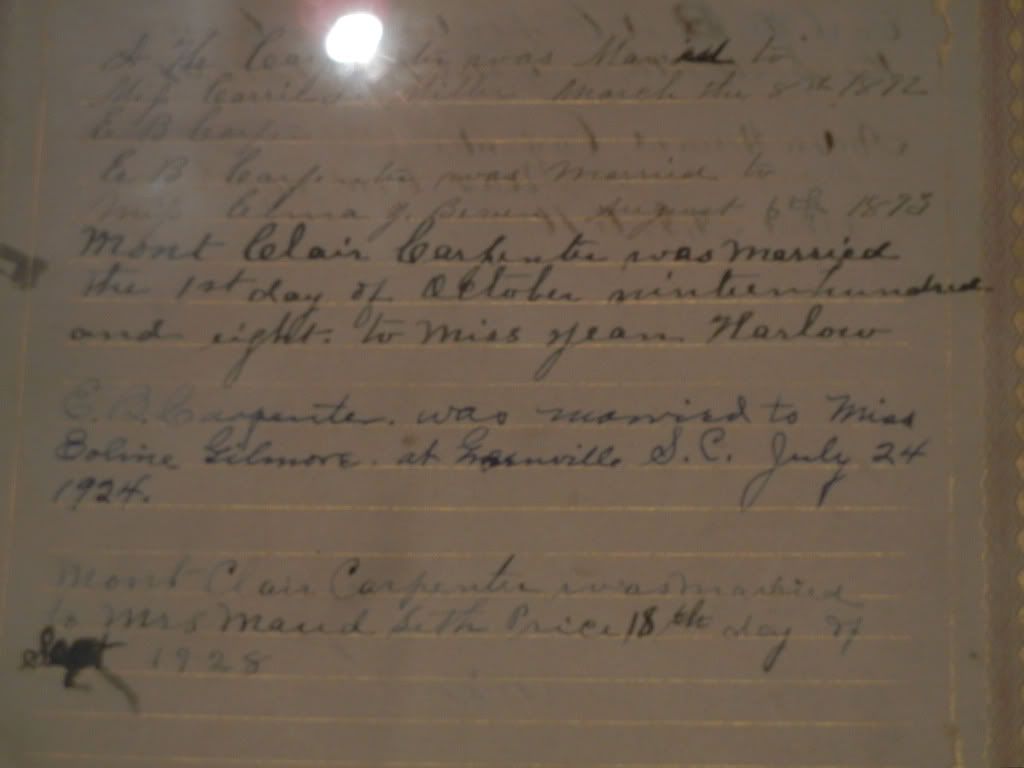 was Married to
Miss March the 8th 1872
E B Carp
E B Carpenter was Married to
Miss Elma J. August 6th 1873
Mont Clair Carpenter was Married
the 1st day of October ninteen hundred
and eight. to Miss Jean Harlow
E. B. Carpenter. was married to Miss
Boline Gilmore. at Greenville S.C. July 24
1924.
Mont Clair Carpenter was Married
to Mrs Maud Seth Price 18th day of
1928